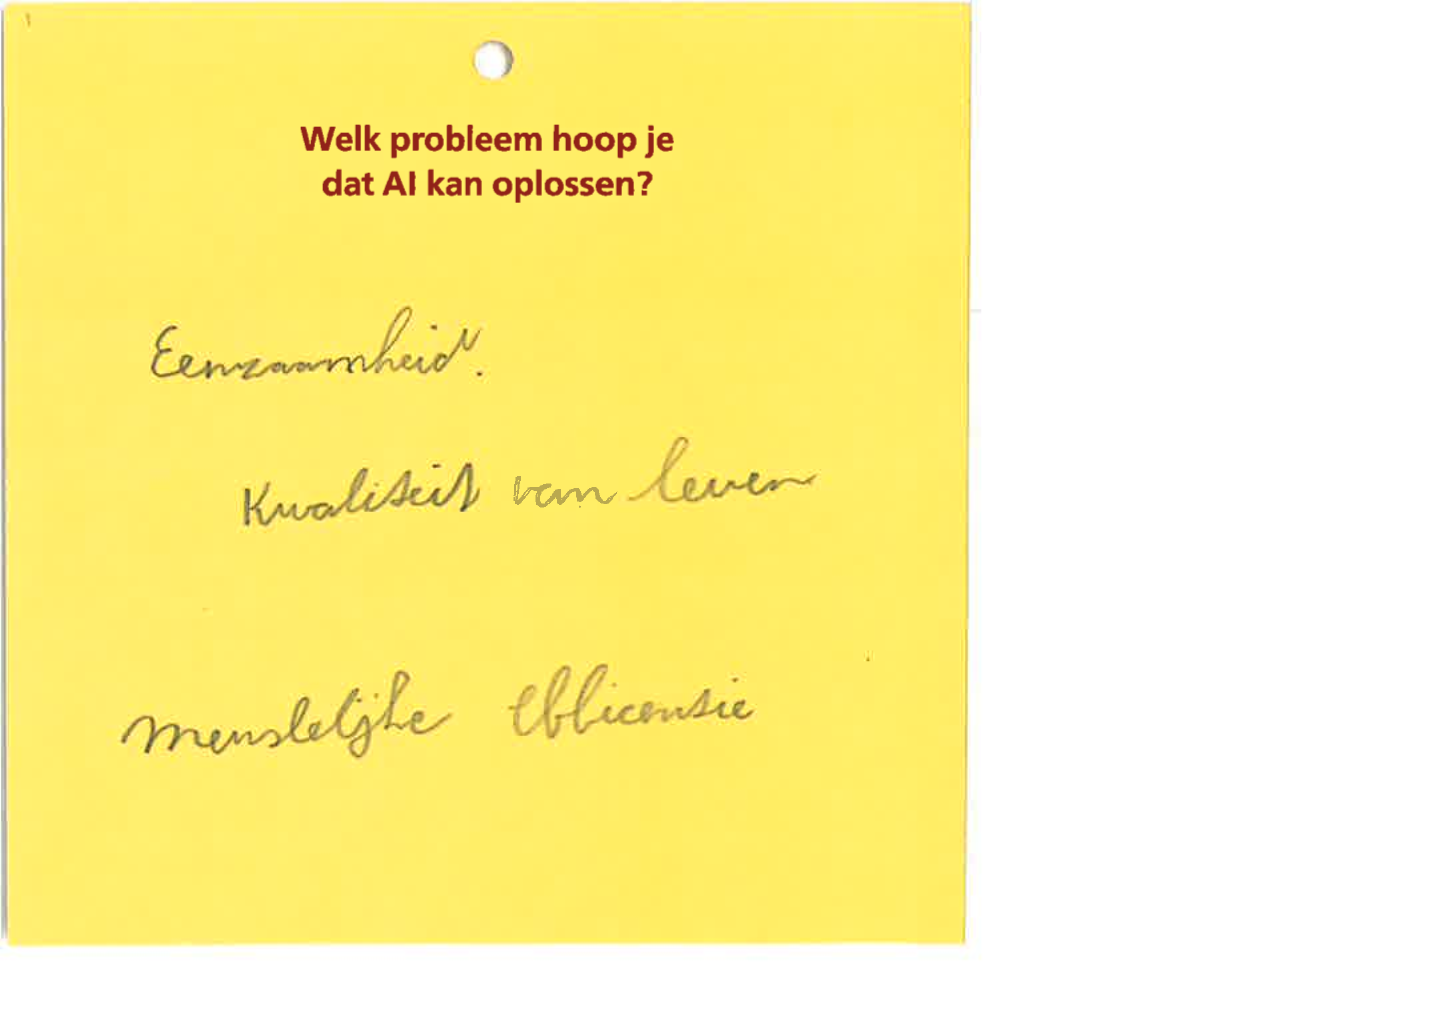 Welk probleem hoop je
dat AI kan oplossen?
Eenzaamheid.
Kwaliteit van leven
menslelijke efficientie